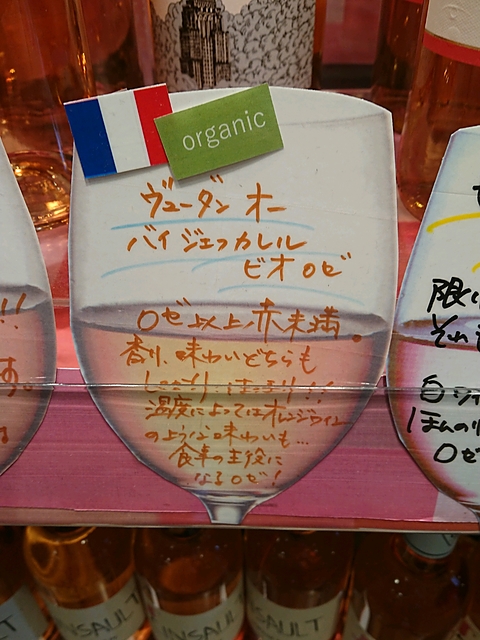 organic
ヴューダン オー
バイ ジェフカレル
ビオ ロゼ
ロゼ以上、赤未満。
香り、味わいどちらも
しっかり、はっきり!!
温度によってはオレンジワイン
のような味わいも…
食卓の主役に
なるロゼ!
!!
す。
限
それ
白
ほんのり
ロゼ
INSAULT
INSAULT